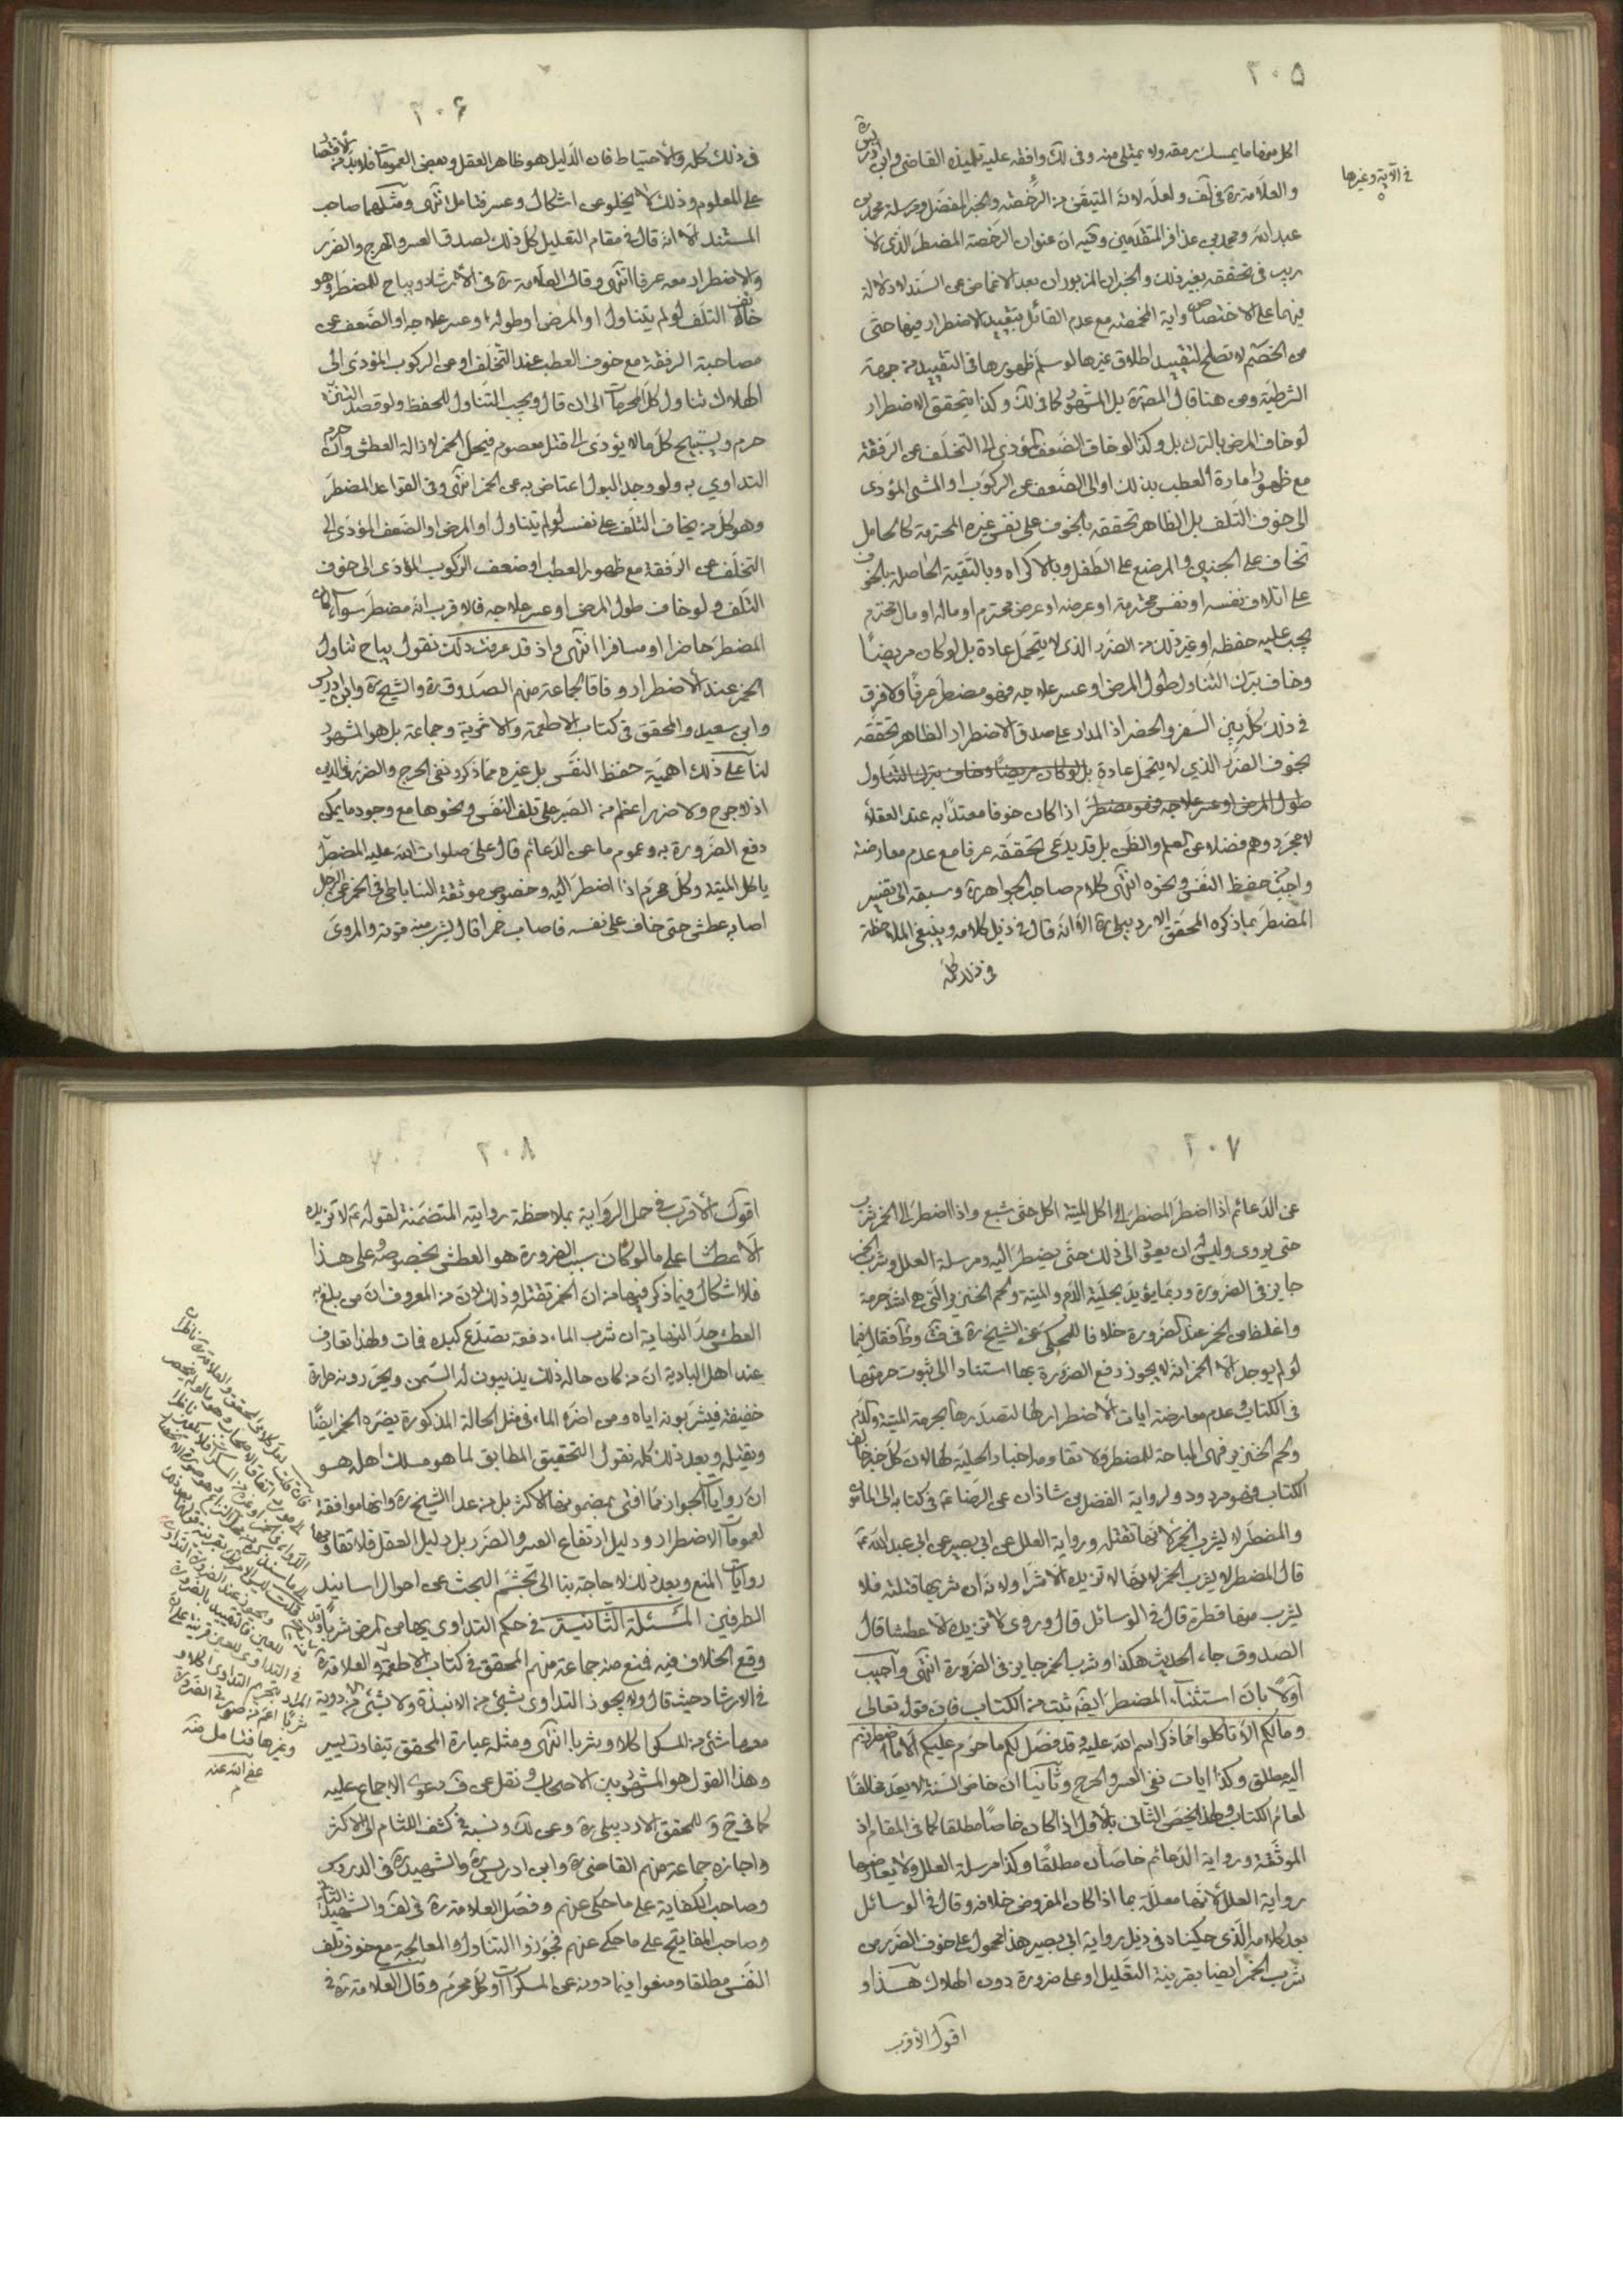 ٢٠٥
اكل منها ما يمسك رمقه ولا يمتلئ منه وفى لك وافقه عليه تلميذه القاضى وابن ادريس ره
والعلامة ره فى لف ولعله لانه المتيقن من الرخصة والخبر المفضل ومرسلة محمد بن
عبدالله ومحمد بن عذافر المتقدمين وفيه ان عنوان الرخصة المضطر الذى لا
ريب فى تحققه بغير ذلك والخبران المزبوران بعد الاغماض عن السند لا دلالة
فيهما على الاختصاص واية المخمصة مع عدم القائل بتقييد الاضطرار فيها حتى
من الخصم لا تصلح لتقييد اطلاق غيرها لو سلم ظهورها فى التقييد من جهة
الشرطية ومن هنا قال المص ره بل المشهور كما فى لك وكذا يتحقق الاضطرار
لو خاف المرض بالترك بل وكذا لو خاف الضعف المؤدى الى التخلف عن الرفقة
مع ظهور امارة العطب بذلك او الى الضعف عن الركوب او المشى المؤدى
الى خوف التلف بل الظاهر تحققه بالخوف على نفس غيره المحترمة كالحامل
تخاف على الجنين والمرضع على الطفل وبالاكراه وبالتقية الحاصلة بالخوف
على اتلاف نفسه او نفس محترمة او عرضه او عرض محترم او ماله او مال محترم
يجب عليه حفظه او غير ذلك من الضرر الذى لا يتحمل عادة بل لو كان مريضًا
وخاف بترك التناول طول المرض او عسر علاجه فهو مضطر عرفًا ولا فرق
فى ذلك كله بين السفر والحضر اذ المدار على صدق الاضطرار الظاهر تحققه
بخوف الضرر الذى لا يتحمل عادة بل لو كان مريضًا وخاف بترك التناول
طول المرض او عسر علاجه فهو مضطر اذا كان خوفا معتدًا به عند العقلاء
لا مجرد وهم فضلا عن العلم والظن بل قد يدعى تحققه عرفا مع عدم معارضة
واجب حفظ النفس ونحوه انتهى كلام صاحب الجواهر ره وسبقه الى تفسير
المضطر بما ذكره المحقق الاردبيلى ره الا انه قال فى ذيل كلامه وينبغى الملاحظة
فى ذلك كله
فى الآية وغيرها
٢٠۶
فى ذلك كله والاحتياط فان الدليل هو ظاهر العقل وبعض العمومات فلا بد من الاقتصار
على المعلوم وذلك لا يخلو عن اشكال وعسر فتامل انتهى ومثلهما صاحب
المستند الا انه قال فى مقام التعليل كل ذلك لصدق العسر والحرج والضرر
والاضطرار معه عرفا انتهى وقال العلامة ره فى الارشاد ويباح للمضطر وهو
خائف التلف لو لم يتناول او المرض او طوله او عسر علاجه او الضعف عن
مصاحبة الرفقة مع خوف العطب عند التخلف او عن الركوب المؤدى الى
الهلاك تناول كل المحرمات الى ان قال ويجب التناول للحفظ ولو قصد التنزه
حرم ويستبيح كل ما لا يؤدى الى قتل معصوم فيحل الخمر لازالة العطش وان حرم
التداوي به ولو وجد البول اعتاض به عن الخمر انتهى وفى القواعد المضطر
وهو كل من يخاف التلف على نفسه لو لم يتناول او المرض او الضعف المؤدى الى
التخلف عن الرفقة مع ظهور العطب او ضعف الركوب المؤدى الى خوف
التلف ولو خاف طول المرض او عسر علاجه فالاقرب انه مضطر سواء كان
المضطر حاضرا او مسافرا انتهى واذ قد عرفت ذلك نقول يباح تناول
الخمر عند الاضطرار وفاقا لجماعة منهم الصدوق ره والشيخ ره وابن ادريس
وابى سعيد والمحقق فى كتاب الاطعمة والاشربة وجماعة بل هو المشهور
لنا على ذلك اهمية حفظ النفس بل غيره مما ذكر ونفى الحرج والضرر فى الدين
اذ لا حرج ولا ضرر اعظم من الصبر على تلف النفس ونحوها مع وجود ما يمكن
دفع الضرورة به وعموم ما عن الدعائم قال على صلوات الله عليه المضطر
ياكل الميتة وكل محرم اذا اضطر اليه وخصوص موثقة الساباطى فى الخمر عن الرجل
اصابه عطش حتى خاف على نفسه فاصاب خمرا قال يشرب منه قوته والمروى
٢٠٧
عن الدعائم اذا اضطر المضطر الى اكل الميتة اكل حتى شبع واذا اضطر الى الخمر شرب
حتى يروى وليس له ان يعود الى ذلك حتى يضطر اليه ومرسلة العلل وشرب الخمر
جايز فى الضرورة وربما يؤيد بحلية الدم والميتة ولحم الخنزير التى هى اشد حرمة
واغلظ من الخمر عند الضرورة خلافا للمحكى عن الشيخ ره فى ف وط فقال فيما
لو لم يوجد الا الخمر انه لا يجوز دفع الضرورة بها استنادا الى ثبوت حرمتها
فى الكتاب وعدم معارضة ايات الاضطرار لها لتصدرها بحرمة الميتة والدم
ولحم الخنزير فهى المباحة للمضطر ولا تقاومها اخبار الحلية لها لان كل خبر خالف
الكتاب فهو مردود ولرواية الفضل بن شاذان عن الرضا ع فى كتابه الى المامون
والمضطر لا يشرب الخمر لانها تقتله ورواية العلل عن ابى بصير عن ابى عبد الله ع
قال المضطر لا يشرب الخمر لانها لا تزيده الا شرا ولانه ان شربها قتلته فلا
يشرب منها قطرة قال فى الوسائل قال وروى لا تزيده الا عطشا قال
الصدوق جاء الحديث هكذا وشرب الخمر جايز فى الضرورة انتهى واجيب
اولًا بان استثناء المضطر ايضا ثبت من الكتاب فان قوله تعالى
ومالكم الا تاكلوا مما ذكر اسم الله عليه وقد فصل لكم ما حرم عليكم الا ما اضطررتم
اليه مطلق وكذا ايات نفى العسر والحرج وثانيا ان خاص السنة لا يعد مخالفًا
لعام الكتاب ولهذا يخص الثانى بالاول اذا كان خاصًا مطلقا كما فى المقام اذ
الموثقة ورواية الدعائم خاصان مطلقًا وكذا مرسلة العلل ولا يعارضها
رواية العلل لانها معللة بما اذا كان المفروض خلافه وقال فى الوسائل
بعد كلامه الذى حكيناه فى ذيل رواية ابى بصير هذا محمول على خوف الضرر من
شرب الخمر ايضا بقرينة التعليل او على ضرورة دون الهلاك هذا و
اقول الاقرب
٢٠٨
اقول الاقرب فى حمل الرواية بملاحظة روايته المتضمنة لقوله ع لا تزيده
الا عطشا على ما لو كان سبب الضرورة هو العطش بخصوصه وعلى هذا
فلا اشكال فيما ذكر فيها من ان الخمر تقتله وذلك لان من المعروف ان من بلغ به
العطش حد النهاية ان شرب الماء دفعة تصدع كبده فمات ولهذا تعارف
عند اهل البادية ان من كان حاله ذلك يذيبون له السمن ويحررونه حرارة
خفيفة فيشربونه اياه ومن اضره الماء فى مثل الحالة المذكورة يضره الخمر ايضًا
ويقتله وبعد ذلك كله نقول التحقيق المطابق لما هو مسلك اهله هو
ان روايات الجواز مما افتى بمضمونها الاكثر بل من عدا الشيخ ره وانها موافقة
لعمومات الاضطرار ودليل ارتفاع العسر والضرر بل دليل العقل فلا تقاومها
روايات المنع وبعد ذلك لا حاجة بنا الى تجشم البحث عن احوال اسانيد
الطرفين المسئلة الثانية فى حكم التداوى بها من المرض شربا وقد
وقع الخلاف فيه فمنع منه جماعة منهم المحقق فى كتاب الاطعمة والعلامة ره
فى الارشاد حيث قال ولا يجوز التداوى بشئ من الانبذة ولا بشئ من الادوية
معها شئ من المسكر اكلا وشربا انتهى ومثله عبارة المحقق بتفاوت يسير
وهذا القول هو المشهور بين الاصحاب ونقل عن ف دعوى الاجماع عليه
كما فى ح و للمحقق الاردبيلى ره وعن لك ونسبه فى كشف اللثام الى الاكثر
واجازه جماعة منهم القاضى ره وابن ادريس ره والشهيد ره فى الدروس
وصاحب الكفاية على ما حكى عنهم وفصل العلامة ره فى لف والشهيد الثانى
وصاحب المفاتيح على ما حكى عنهم فجوزوا التناول والمعالجة مع خوف تلف
النفس مطلقا ومنعوا فيما دونه عن المسكرات وكل محرم وقال العلامة ره فى
فان قلت لعل كلام المحقق والعلامة ره ناظر
وغيرها فتامل منه
عفى الله عنه